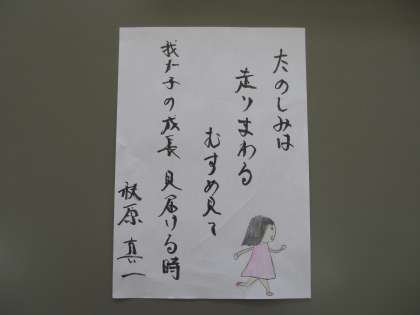 たのしみは
走りまわる
むすめ見て
我が子の成長 見届ける時
萩原 真一